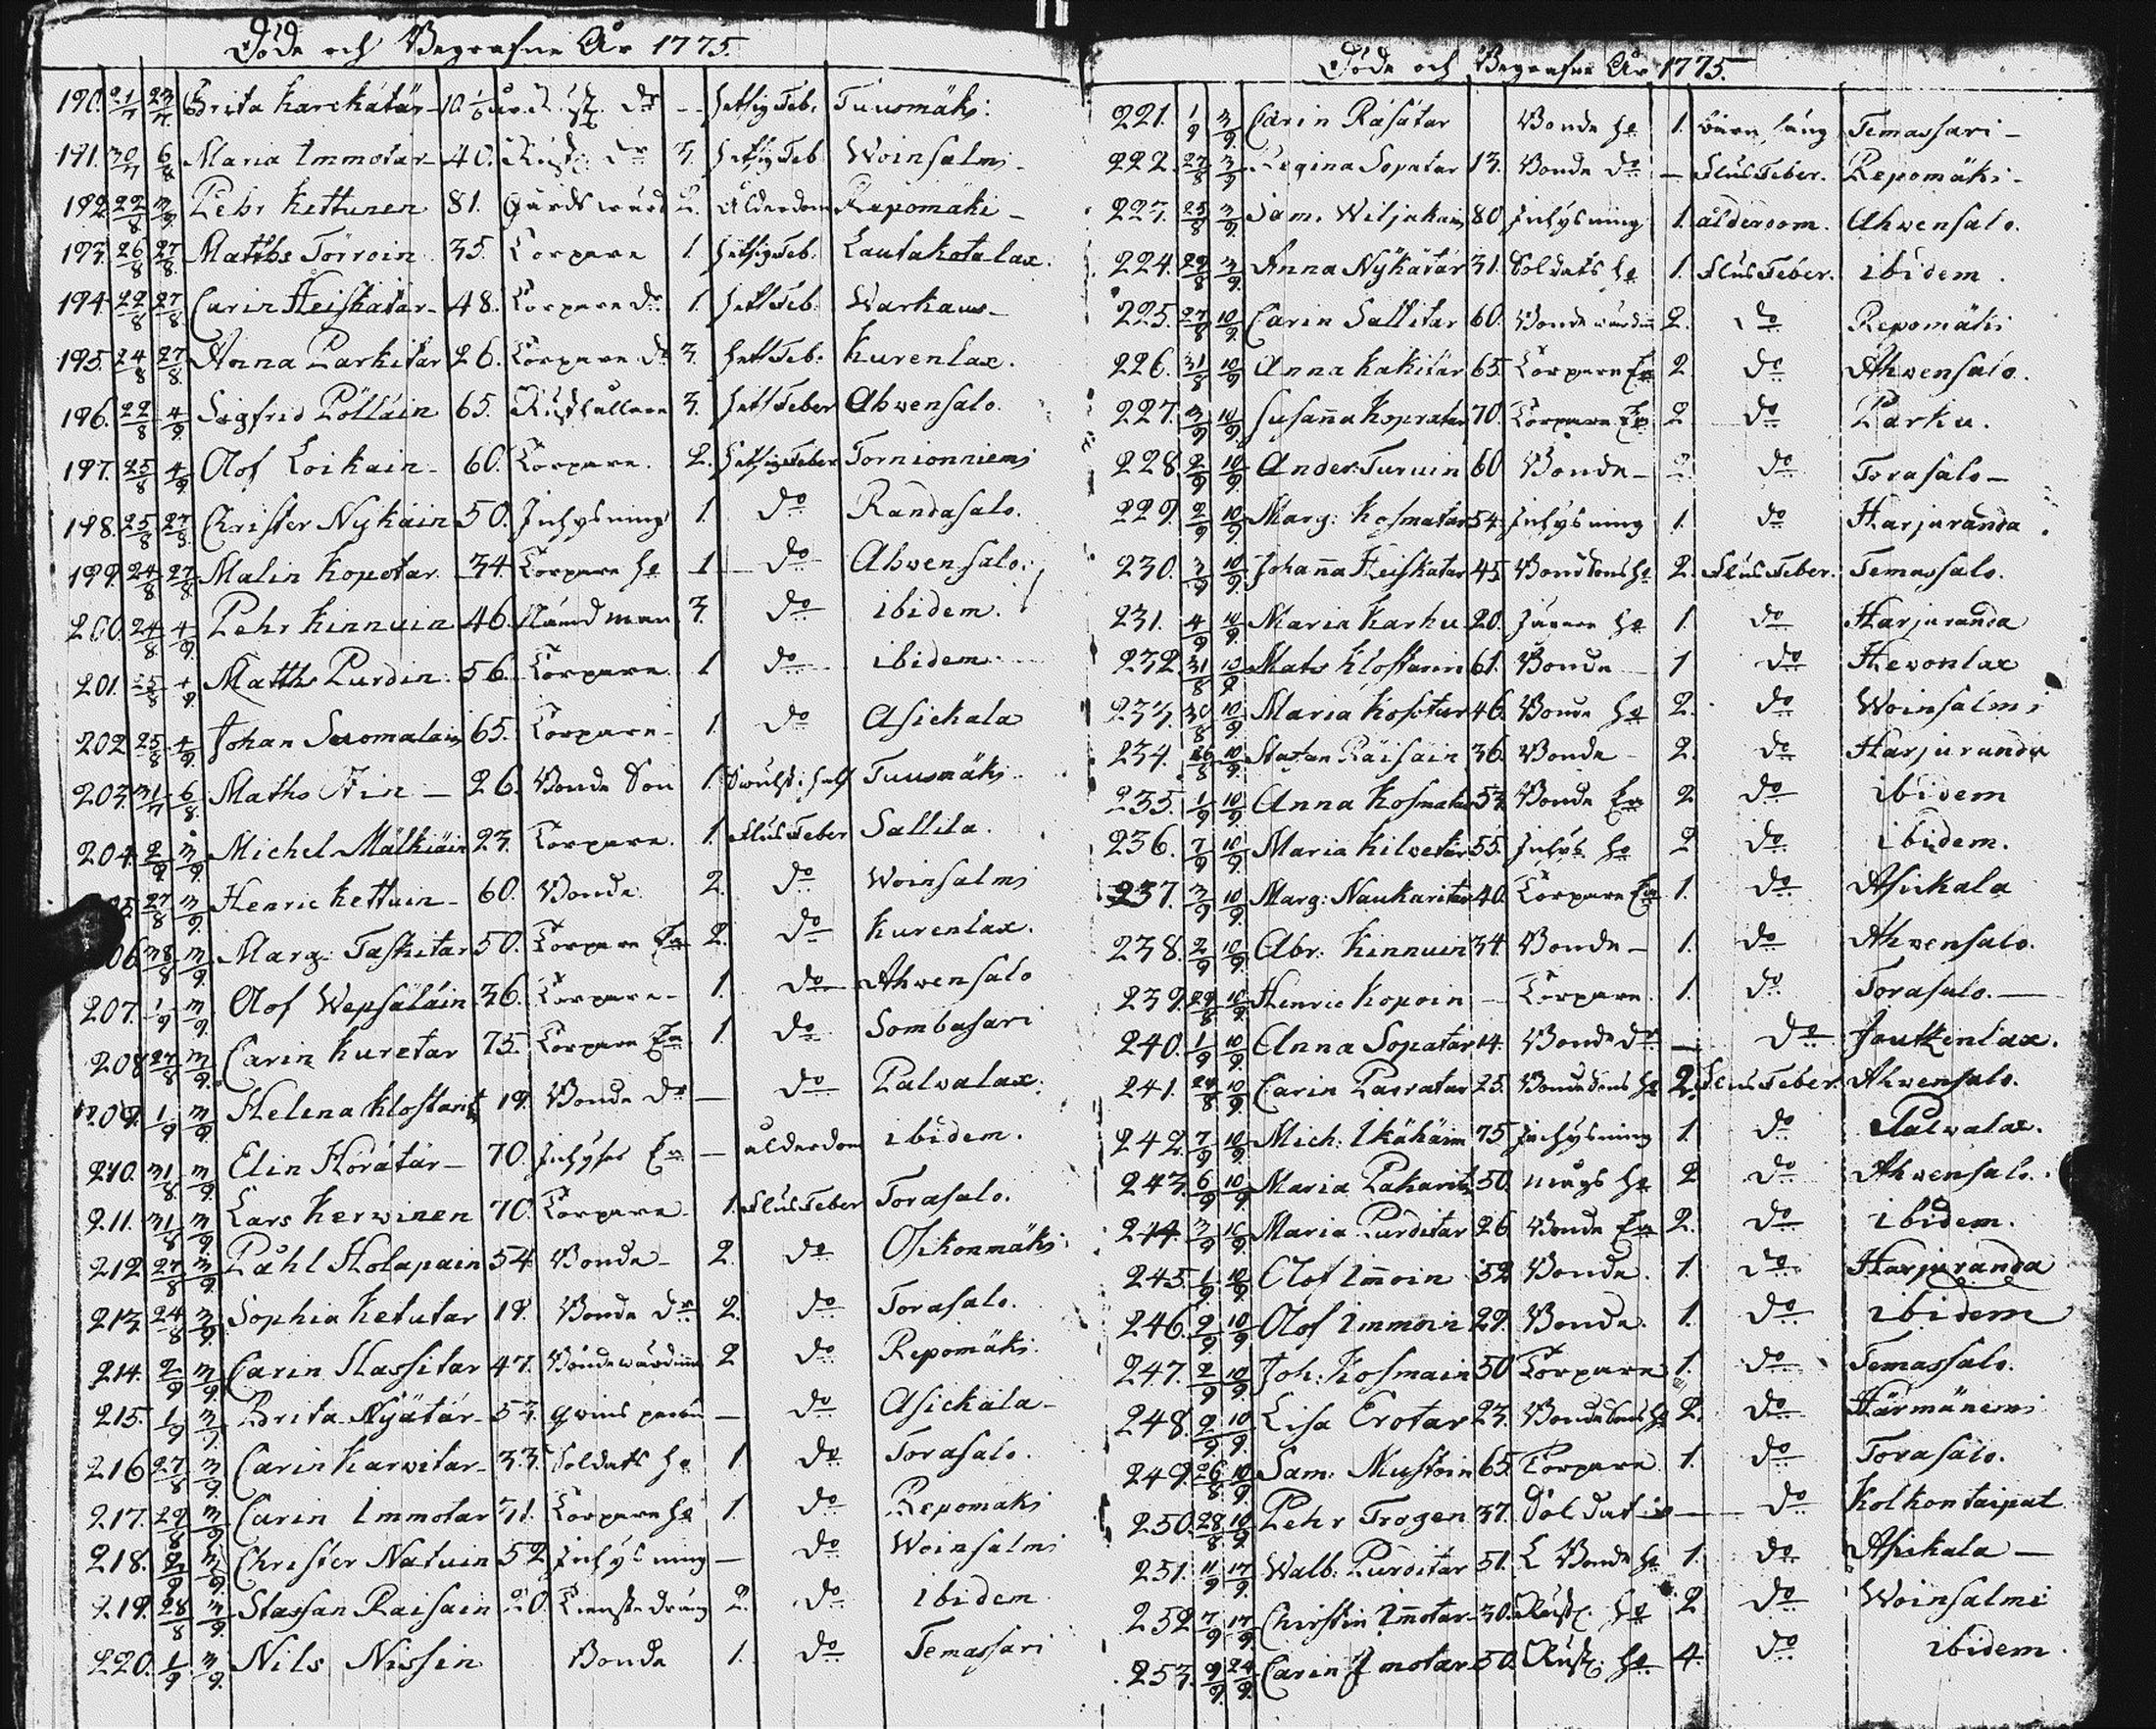 Döde och Begrafne År 1775.
190. 21/7 23/7 Brita Karckátär 10 Hetsig Feb. Tuusmäki
191. 30/7 6/8 Maria Immotar 40. Rust. dr 3. Hetsig Feb Woinsalmi
192. 22/8 3/9 Pehr Kettunen 81. Gårdswärd 2. Ålderdom Repomäki
193. 26/8 27/8 Matths Törroin 35. Torpare 1 Hetsig Feb. Lautakotalax.
194. 22/8 27/8 Carin Heiskatar 48. Torpare dr 1. Hets Feb. Warkaus
195. 24/8 27/8 Anna Parkitar 26. Torpare dr 3. Hets Feb. Kurenlax.
196. 22/8 4/9 Sigfrid Pölläin 65. Rusthållare 3. Hets Feber Ahvensalo.
197. 25/8 4/9 Olof Loikain 60. Torpare. 2. Hetsig Feber Tornionniemi
198. 25/8 27/8 Christer Nykäin 50. Inhysning 1. do Randasalo.
199. 24/8 27/8 Malin Kopotar 34. Torpare Hu 1 do Ahvensalo.
200. 24/8 4/9 Pehr Kinnuin 46. Nämdman 3. do ibidem.
201. 25/8 4/9 Matths Purdin 56. Torpare 1 do ibidem
202 25/8 4/9 Johan Suomalain 65. Torpare 1. do Asickala
203. 31/7 6/8 Maths Äin 26. Bonde Son 1. Tuusmäki
204. 2/9 3/9 Michel Mälkiäin 23. Torpare 1. Flus Feber Sallila.
27/8 3/9 Henric Kettuin 60. Bonde 2. do Woinsalmi
06 3/9 Marg: Taskitar 50. Torpare En 2. do Kurenlax.
207. 1/9 3/9 Olof Wepsäläin 36. Torpare 1. do Ahvensalo
208 27/8 3/9 Carin Kuretar 75. Torpare En 1. do Sombasari
209. 1/9 3/9 Helena Klostarit 19. Bonde dr do Palvalax.
210. 31/8 3/9 Elin Horátár 70. Inhyses En ålderdom ibidem.
211. 31/8 3/9 Lars Kerwinen 70. Torpare 1. Flus Feber Torasalo.
212 27/8 3/9 Påhl Holapain 54 Bonde 2. do Osikonmäki
213. 24/8 3/9 Sophia Ketutar 19. Bonde dr 2. do Torasalo.
214. 2/9 3/9 Carin Hassitar 47. Bondewärdinna 2 do Repomäki
215. 1/9 3/9 Brita Nyátár 53. do Asickala
216 27/8 3/9 Carin Karvitar 33. Soldats Hu 1 do Torasalo.
217. 29/8 3/9 Carin Immotar 31. Torpare Hu 1. do Repomäki
218. 2/9 3/9 Christer Natuin 52 Inhysning do Woinsalmi
219. 28/8 3/9 Staffan Raisain 20. Tienstedräng 2. do ibidem
220. 1/9 3/9 Nils Nissin Bonde 1. do Temassari
Döde och Begrafne År 1775.
221. 1/9 3/9 Carin Räsätar Bonde Hu 1. Temassari
222. 27/8 3/9 Regina Sopatar 13. Bonde dr Flus Feber. Repomäki
223. 25/8 3/9 Sam. Wiljakain 80 Inhysning 1. ålderdom. Ahvensalo.
224. 29/8 3/9 Anna Nykätár 31. Soldats Hu 1. Flus Feber. ibidem.
225. 27/8 10/9 Carin Sallitar 60. Bondewärdin 2. do Repomäki
226. 31/8 10/9 Anna Kakitár 65. Torpare En 2 do Ahvensalo.
227. 3/9 10/9 Susanna Kopratar 70. Torpare En 2 do Parku.
228. 2/9 10/9 Ander: Turuin 60 Bonde 2 do Torasalo
229. 2/9 10/9 Marg: Kosmatar 54. Inhysning 1. do Harjuranda
230. 3/9 10/9 Johanna Heiskatar 45. Bondsons Hu 2. Flus Feber. Temassalo.
231. 4/9 10/9 Maria Karhu 20. Jägare Hu 1. do Harjuranda
232. 31/8 10/9 Mats Klossanin 61. Bonde 1 do Hevonlax
233. 30/8 10/9 Maria Kosotar 46. Bonde Hu 2. do Woinsalmi
234. 26/8 10/9 Staffan Räisäin 36. Bonde 2. do Harjuranda
235. 1/9 10/9 Anna Kosmatar 53. Bonde En 2 do ibidem
236. 7/9 10/9 Maria Kilvetär 55. Inhys. Hu 2 do ibidem.
237. 3/9 10/9 Marg: Naukaritar 40. Torpare En 1. do Asickala
238. 2/9 10/9 Abr. Kinnuin 34 Bonde 1. do Ahvensalo.
239. 29/8 10/9 Henric Kopoin Torpare 1. do Torasalo.
240. 1/9 10/9 Anna Sopatar 14. Bonde dr do Joutkenlax.
241. 24/8 10/9 Carin Parratar 25. Bondesons Hu 2. Flus Feber. Ahvensalo.
242. 7/9 10/9 Mich: Ikähäim 75 Inhysning 1. do Palvalax.
243. 6/9 10/9 Maria Pakarit 50. Hu 2 do Ahvensalo.
244. 3/9 10/9 Maria Purditar 26 Bonde En 2. do ibidem.
245. 1/9 10/9 Olof Immoin 52 Bonde. 1. do Harjuranda
246. 2/9 10/9 Olof Immoin 29. Bonde. 1. do ibidem
247. 2/9 10/9 Joh: Kosmain 50 Torpare 1. do Temassalo.
248. 2/9 10/9 Lisa Erotar 23. Bondesons Hu 2. do Härmäniemi
249. 26/8 10/9 Sam: Mustoin 65. Torpare 1. do Torasalo.
250. 28/8 10/9 Pehr Trogen 37. Soldat do Kolkontaipal
251. 11/9 17/9 Walb: Purditar 51. L Bonde Hu 1. do Asickala
252 7/9 17/9 Chirstin Immotar 30. Rust. Hu 2 do Woinsalmi
253. 9/9 24/9 Carin Imotar 50. Rust. Hu 4. do ibidem.